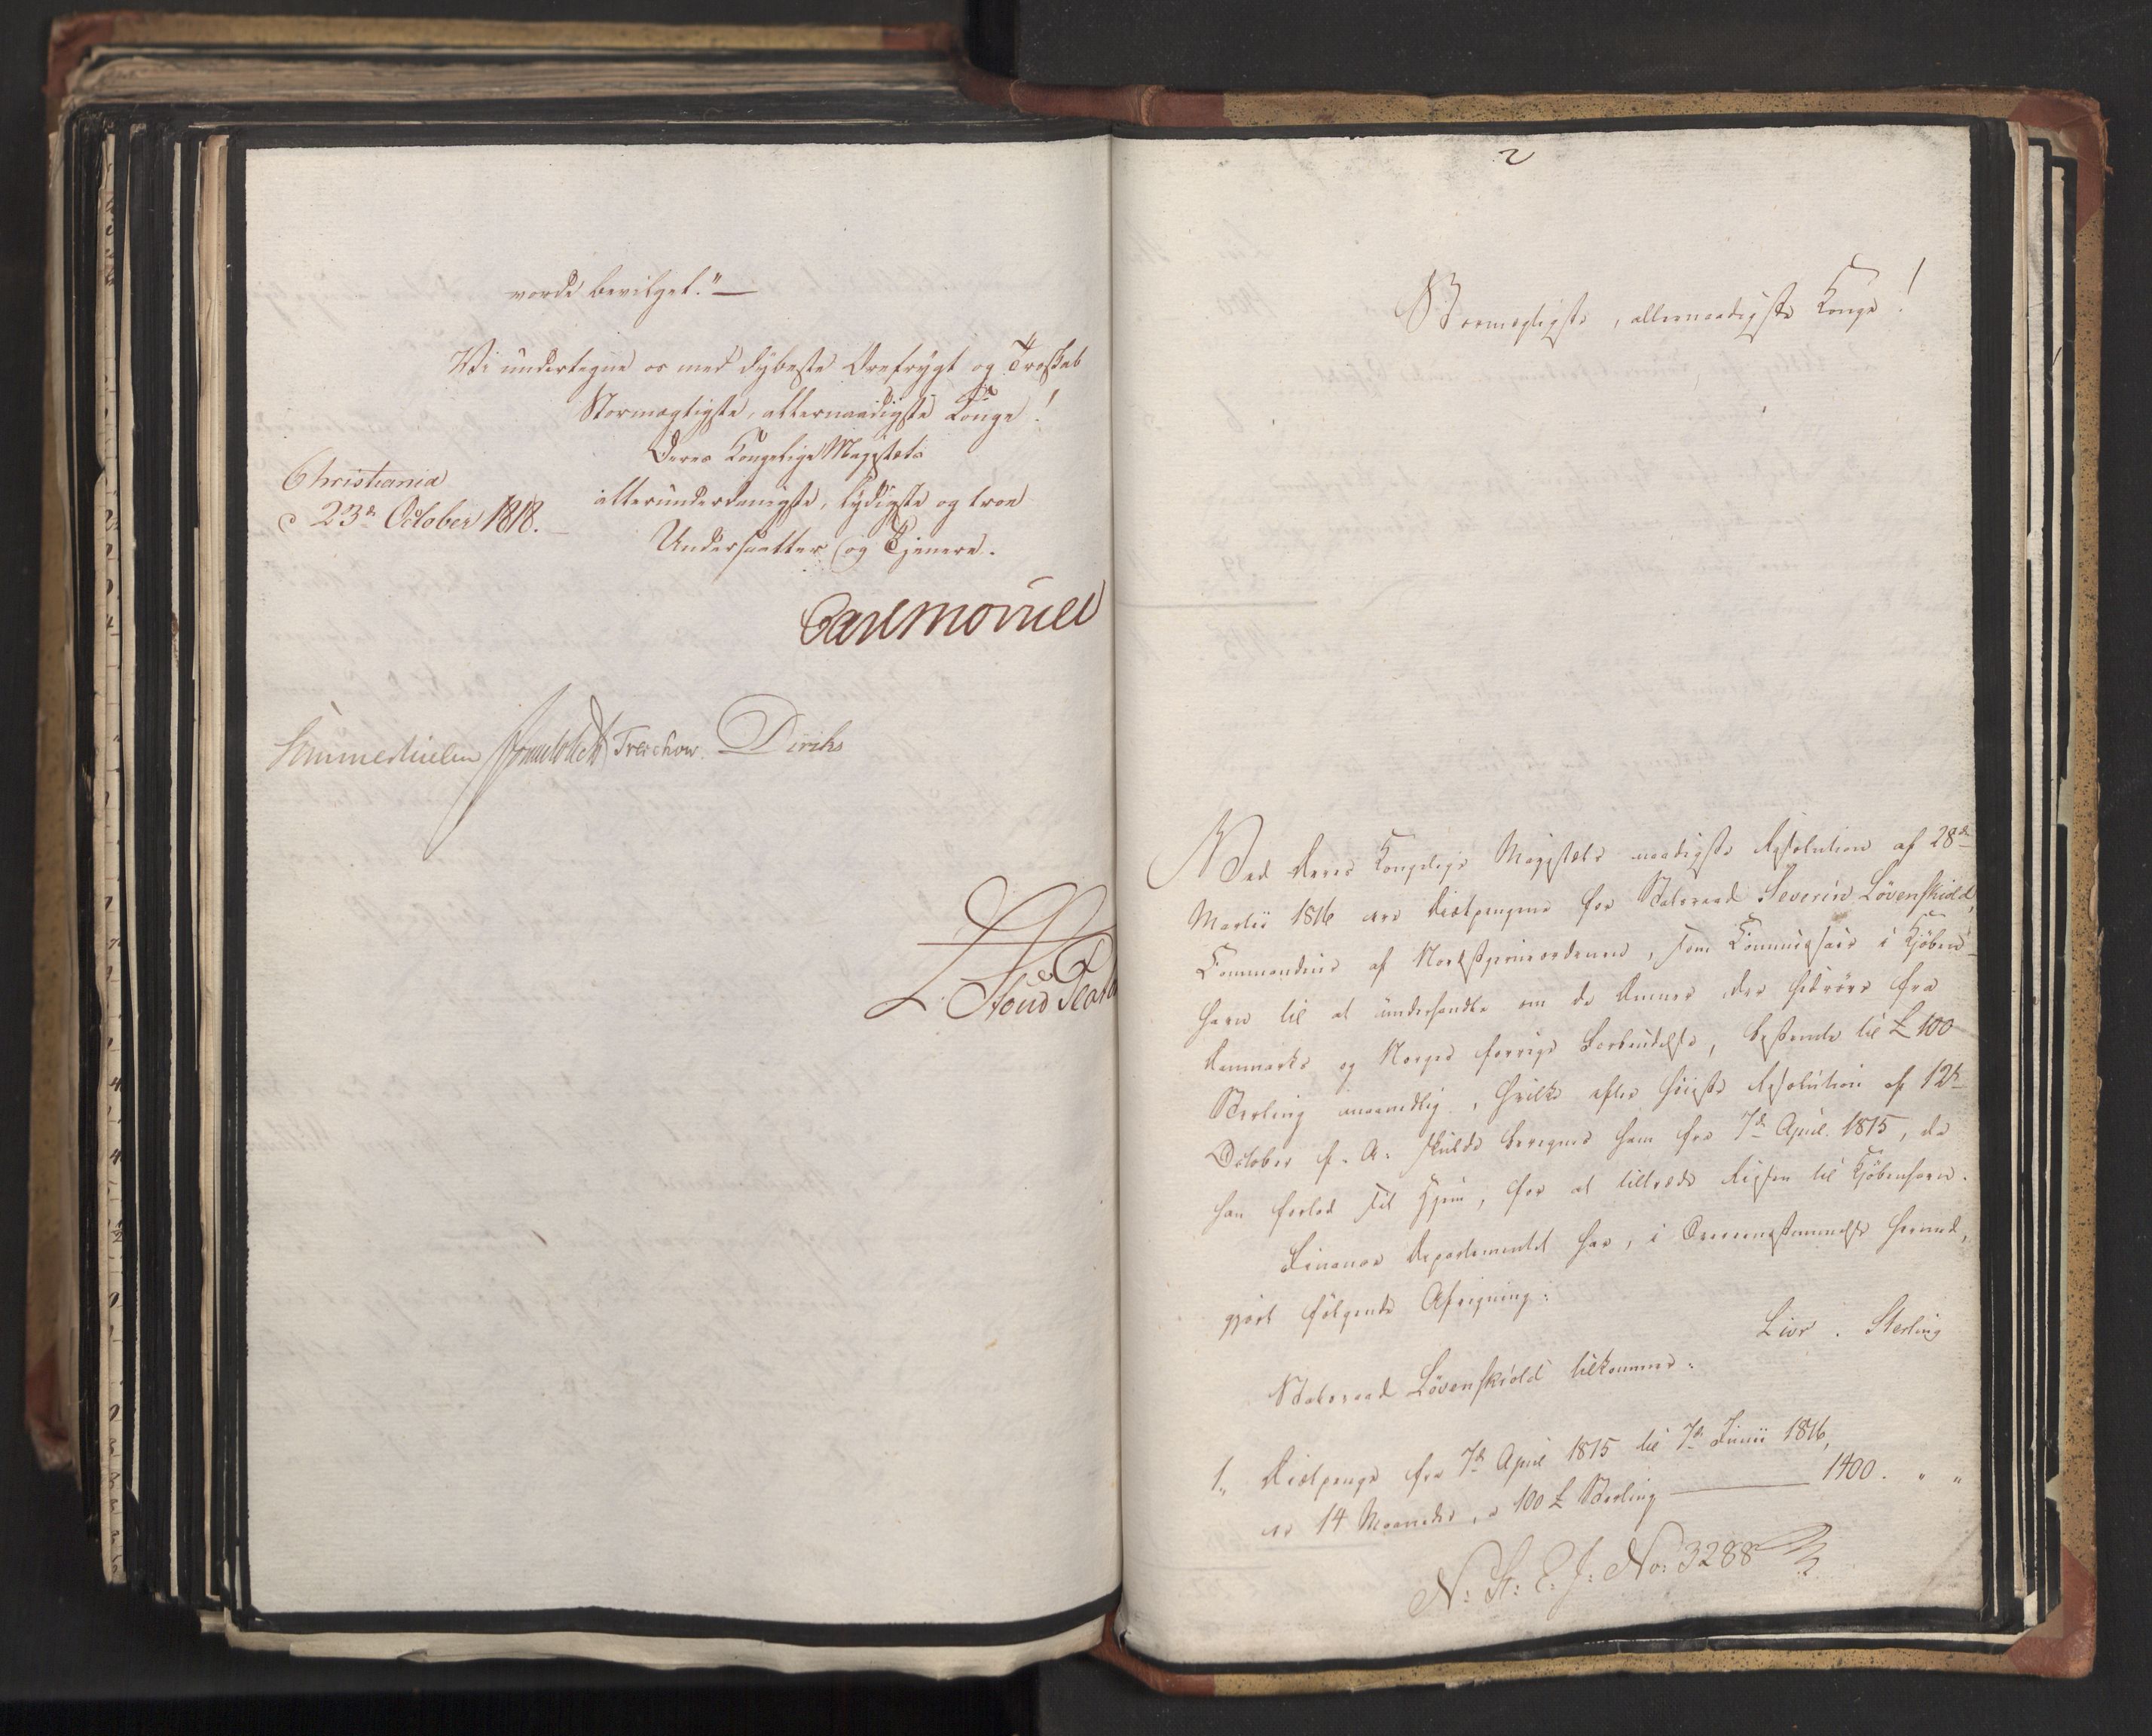 vorde bevilget."—
Vi undertegne os med dybeste Ærefrygt og Troskab
Stormægtigste, allernaadigste Konge!
Deres Kongelige Majestæts
allerunderdanigste, lydigste og troe
Undersaatter og Tjenere.
Christiania
d 23de October 1818.
Carl Mörner
Sommerhielm Treschow. Diriks
2
Stormægtigste, allernaadigste Konge!
Ved Deres Kongelige Majestæts naadigste Resolution af 28de
Martii 1816 ere Diætpengene for Statsraad Severin Lövenskiold,
Commandeur af Nordstjerneordenen, som Commissair i Kjöben-
havn til at underhandle om de Emner, der hidröre fra
Danmarks og Norges forrige Forbindelse, bestemte til £ 100
Sterling maanedlig, hvilke efter höieste Resolution af 12te
October s. A. skulde beregnes ham fra 7de April 1815, da
han forlod sit Hjem, for at tiltræde Reisen til Kjöbenhavn.
Finance Departementet har, i Overeensstemmelse hermed,
gjort fölgende Afregning:
Livr. Sterling
Statsraad Lövenskiold tilkommer:
1, Diætpenge fra 7de April 1815 til 7de Junii 1816,
er 14 Maaneder, a 100 £ Sterling — 1400. " "
N: St: E. J: No: 3288